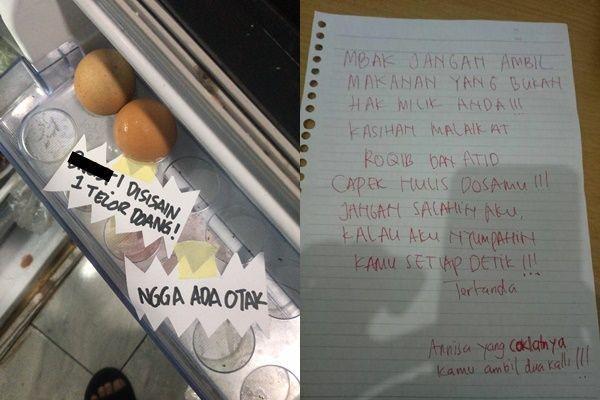 ! DISISAIN
1 TELOR DOANG!
NGGA ADA OTAK
MBAK JANGAN AMBIL
MAKANAN YANG BUKAN
HAK MILIK ANDA!!!
KASIHAN MALAIKAT
ROQIB DAN ATID
CAPEK NULIS DOSAMU!!!
JANGAN SALAHIN AKU,
KALAU AKU NYUMPAHIN
KAMU SETIAP DETIK!!!
Tertanda
Annisa yang coklatnya
kamu ambil dua kali!!!